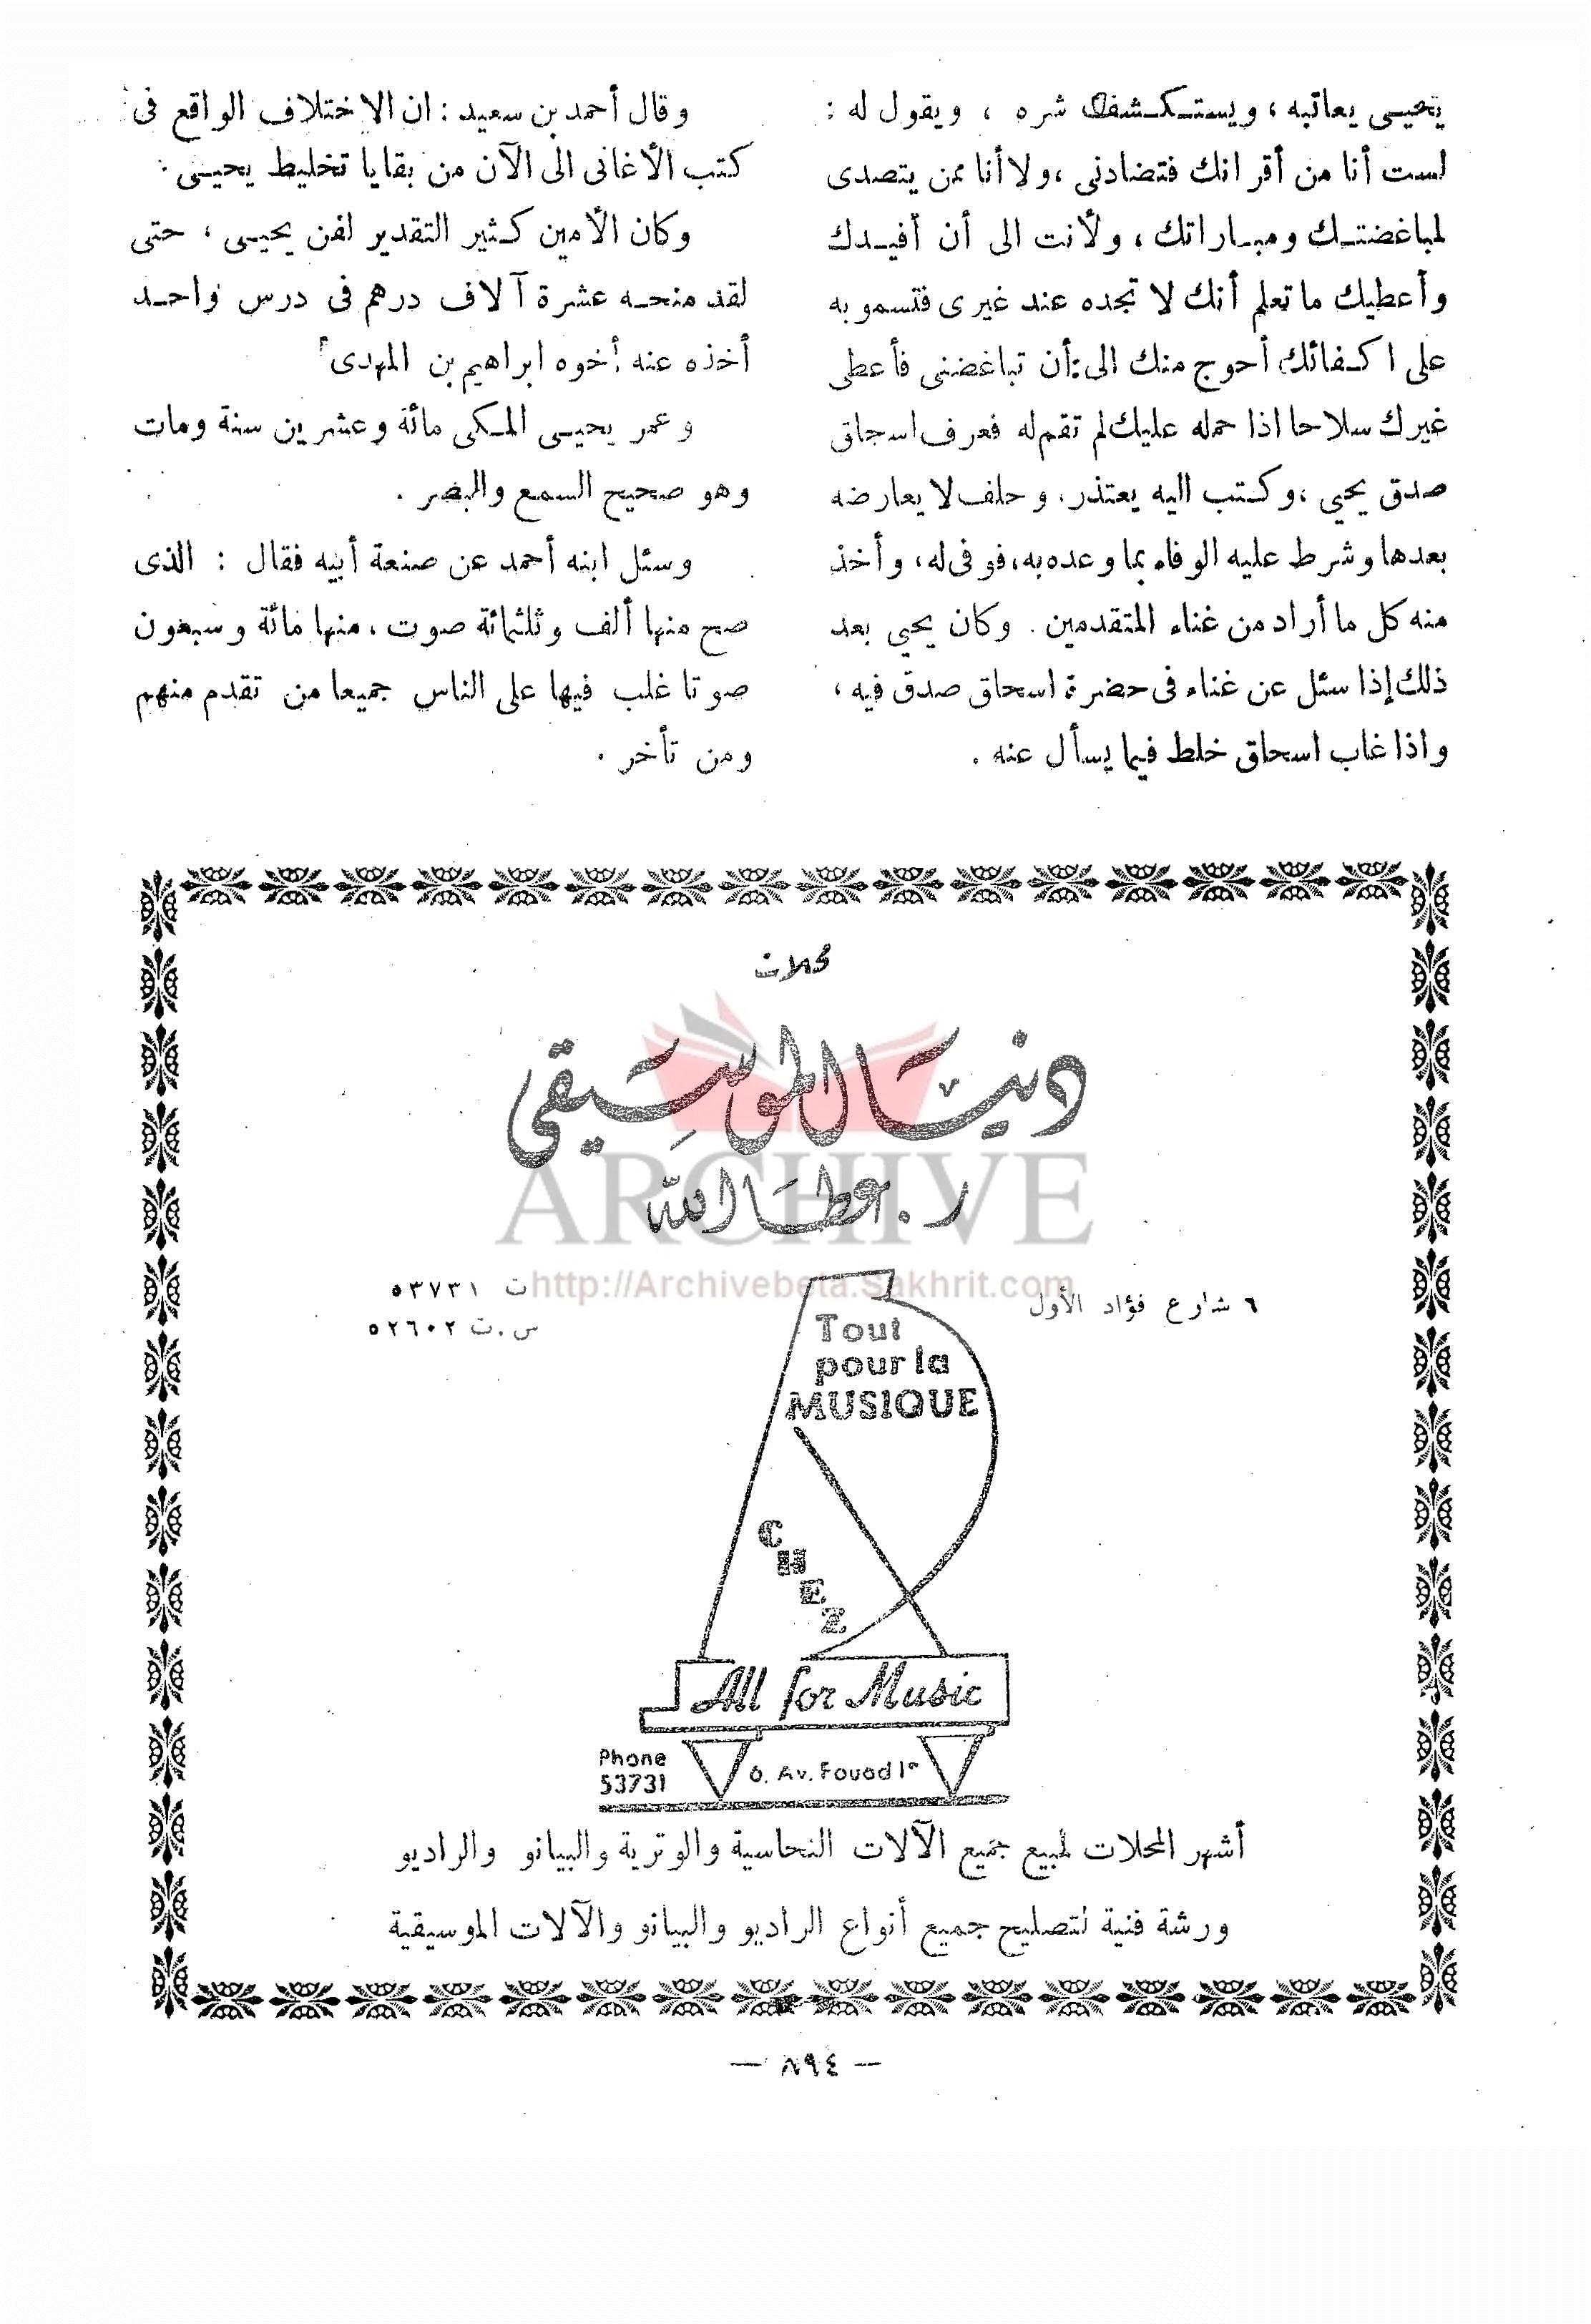 يحيى يعاتبه ، ويستكشف شره ، ويقول له :
لست أنا من أقرانك فتضادنى ، ولا أنا ممن يتصدى
لمباغضتك ومباراتك ، ولأنت الى أن أفيدك
وأعطيك ما تعلم أنك لا تجده عند غيرى فتسمو به
على اكفائك أحوج منك الى أن تباغضنى فأعطى
غيرك سلاحا اذا حمله عليك لم تقم له فعرف اسحاق
صدق يحيى ، وكتب اليه يعتذر ، وحلف لا يعارضه
بعدها وشرط عليه الوفاء بما وعده به ، فوفى له ، وأخذ
منه كل ما أراد من غناء المتقدمين . وكان يحيى بعد
ذلك إذا سئل عن غناء فى حضرة اسحاق صدق فيه ،
واذا غاب اسحاق خلط فيما يسأل عنه .
وقال أحمد بن سعيد : ان الاختلاف الواقع فى
كتب الأغانى الى الآن من بقايا تخليط يحيى .
وكان الأمين كثير التقدير لفن يحيى ، حتى
لقد منحه عشرة آلاف درهم فى درس واحد
أخذه عنه أخوه ابراهيم بن المهدى
وعمر يحيى المكى مائة وعشرين سنة ومات
وهو صحيح السمع والبصر .
وسئل ابنه أحمد عن صنعة أبيه فقال : الذى
صح منها ألف وثلثمائة صوت ، منها مائة وسبعون
صوتا غلب فيها على الناس جميعا من تقدم منهم
ومن تأخر .
محلات
دنيا الموسيقى
ر . عطا الله
ARCHIVE
http://Archivebeta.Sakhrit.com
٦ شارع فؤاد الأول
ت ٥٣٧٣١
س . ت ٥٢٦٠٢
Tout
pour la
MUSIQUE
CHEZ
All for Music
Phone
53731
6. Av. Fouad 1er
أشهر المحلات لمبيع جميع الآلات النحاسية والوترية والبيانو والراديو
ورشة فنية لتصليح جميع أنواع الراديو والبيانو والآلات الموسيقية
— ٨٩٤ —